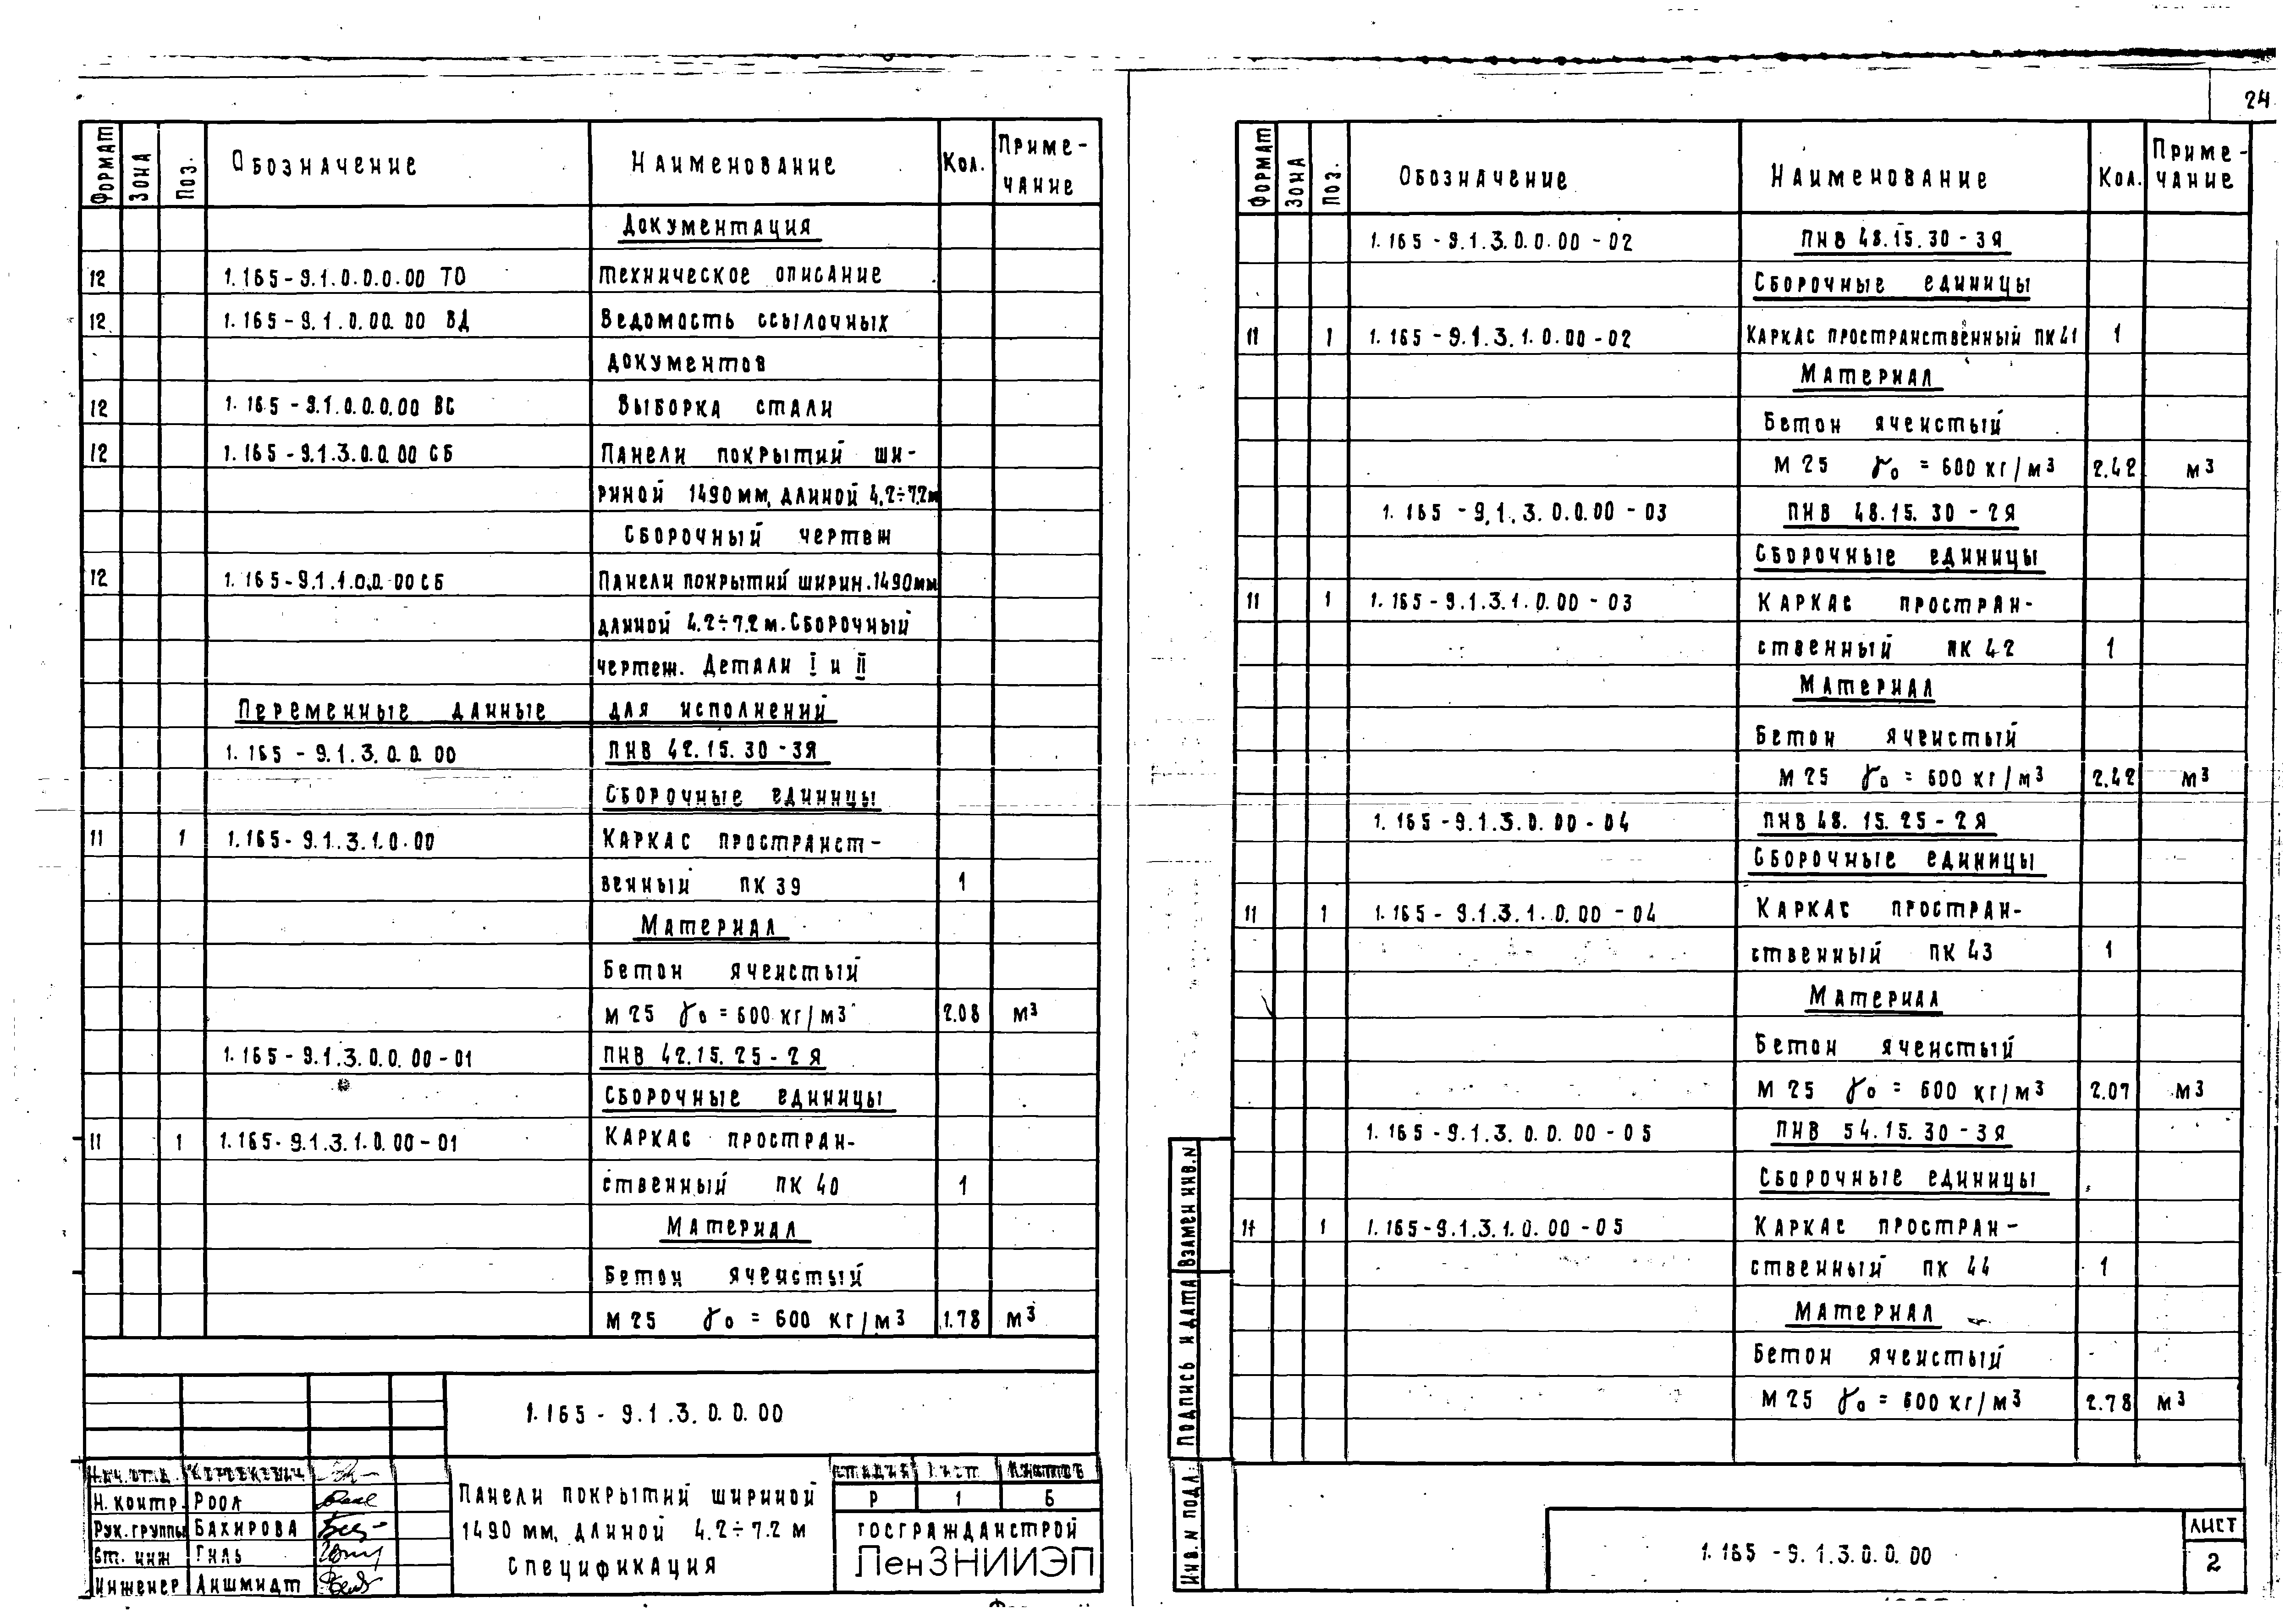 24
Формат Зона Поз. Обозначение Наименование Кол. Приме-
чание
Документация
12 1.165-9.1.0.0.0.00 ТО техническое описание
12 1.165-9.1.0.00.00 ВД Ведомость ссылочных
документов
12 1.165-9.1.0.0.0.00 ВС Выборка стали
12 1.165-9.1.3.0.0.00 СБ Панели покрытий ши-
риной 1490 мм, длиной 4.2÷7.2м
Сборочный чертеж
12 1.165-9.1.1.0.0.00 СБ Панели покрытий ширин.1490мм
длиной 4.2÷7.2 м. Сборочный
чертеж. Детали I и II
Переменные данные для исполнений
1.165-9.1.3.0.0.00 ПНВ 42.15.30-3Я
Сборочные единицы
11 1 1.165-9.1.3.1.0.00 Каркас пространст-
венный ПК 39 1
Материал
Бетон ячеистый
М 25 γ₀ = 600 кг/м3 2.08 м3
1.165-9.1.3.0.0.00-01 ПНВ 42.15.25-2Я
Сборочные единицы
11 1 1.165-9.1.3.1.0.00-01 Каркас простран-
ственный ПК 40 1
Материал
Бетон ячеистый
М 25 γ₀ = 600 кг/м3 1.78 м3
1.165-9.1.3.0.0.00
Нач.отд.
Н. контр. Роол
Рук.группы Бахирова
Ст. инж Гиль
Инженер Аншмидт
Панели покрытий шириной
1490 мм, длиной 4.2÷7.2 м
Спецификация
Стадия Лист Листов
Р 1 6
Госгражданстрой
ЛенЗНИИЭП
Формат Зона Поз. Обозначение Наименование Кол. Приме-
чание
1.165-9.1.3.0.0.00-02 ПНВ 48.15.30-3Я
Сборочные единицы
11 1 1.165-9.1.3.1.0.00-02 Каркас пространственный ПК 41 1
Материал
Бетон ячеистый
М 25 γ₀ = 600 кг/м3 2.42 м3
1.165-9.1.3.0.0.00-03 ПНВ 48.15.30-2Я
Сборочные единицы
11 1 1.165-9.1.3.1.0.00-03 Каркас простран-
ственный ПК 42 1
Материал
Бетон ячеистый
М 25 γ₀ = 600 кг/м3 2.42 м3
1.165-9.1.3.0.00-04 ПНВ 48.15.25-2Я
Сборочные единицы
11 1 1.165-9.1.3.1.0.00-04 Каркас простран-
ственный ПК 43 1
Материал
Бетон ячеистый
М 25 γ₀ = 600 кг/м3 2.07 м3
1.165-9.1.3.0.0.00-05 ПНВ 54.15.30-3Я
Сборочные единицы
11 1 1.165-9.1.3.1.0.00-05 Каркас простран-
ственный ПК 44 1
Материал
Бетон ячеистый
М 25 γ₀ = 600 кг/м3 2.78 м3
Взамен инв.N
Подпись и дата
Инв. N подл.
1.165-9.1.3.0.0.00
Лист
2